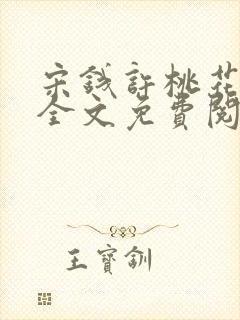 宋钱許桃花
全文免費閱
王寶釧